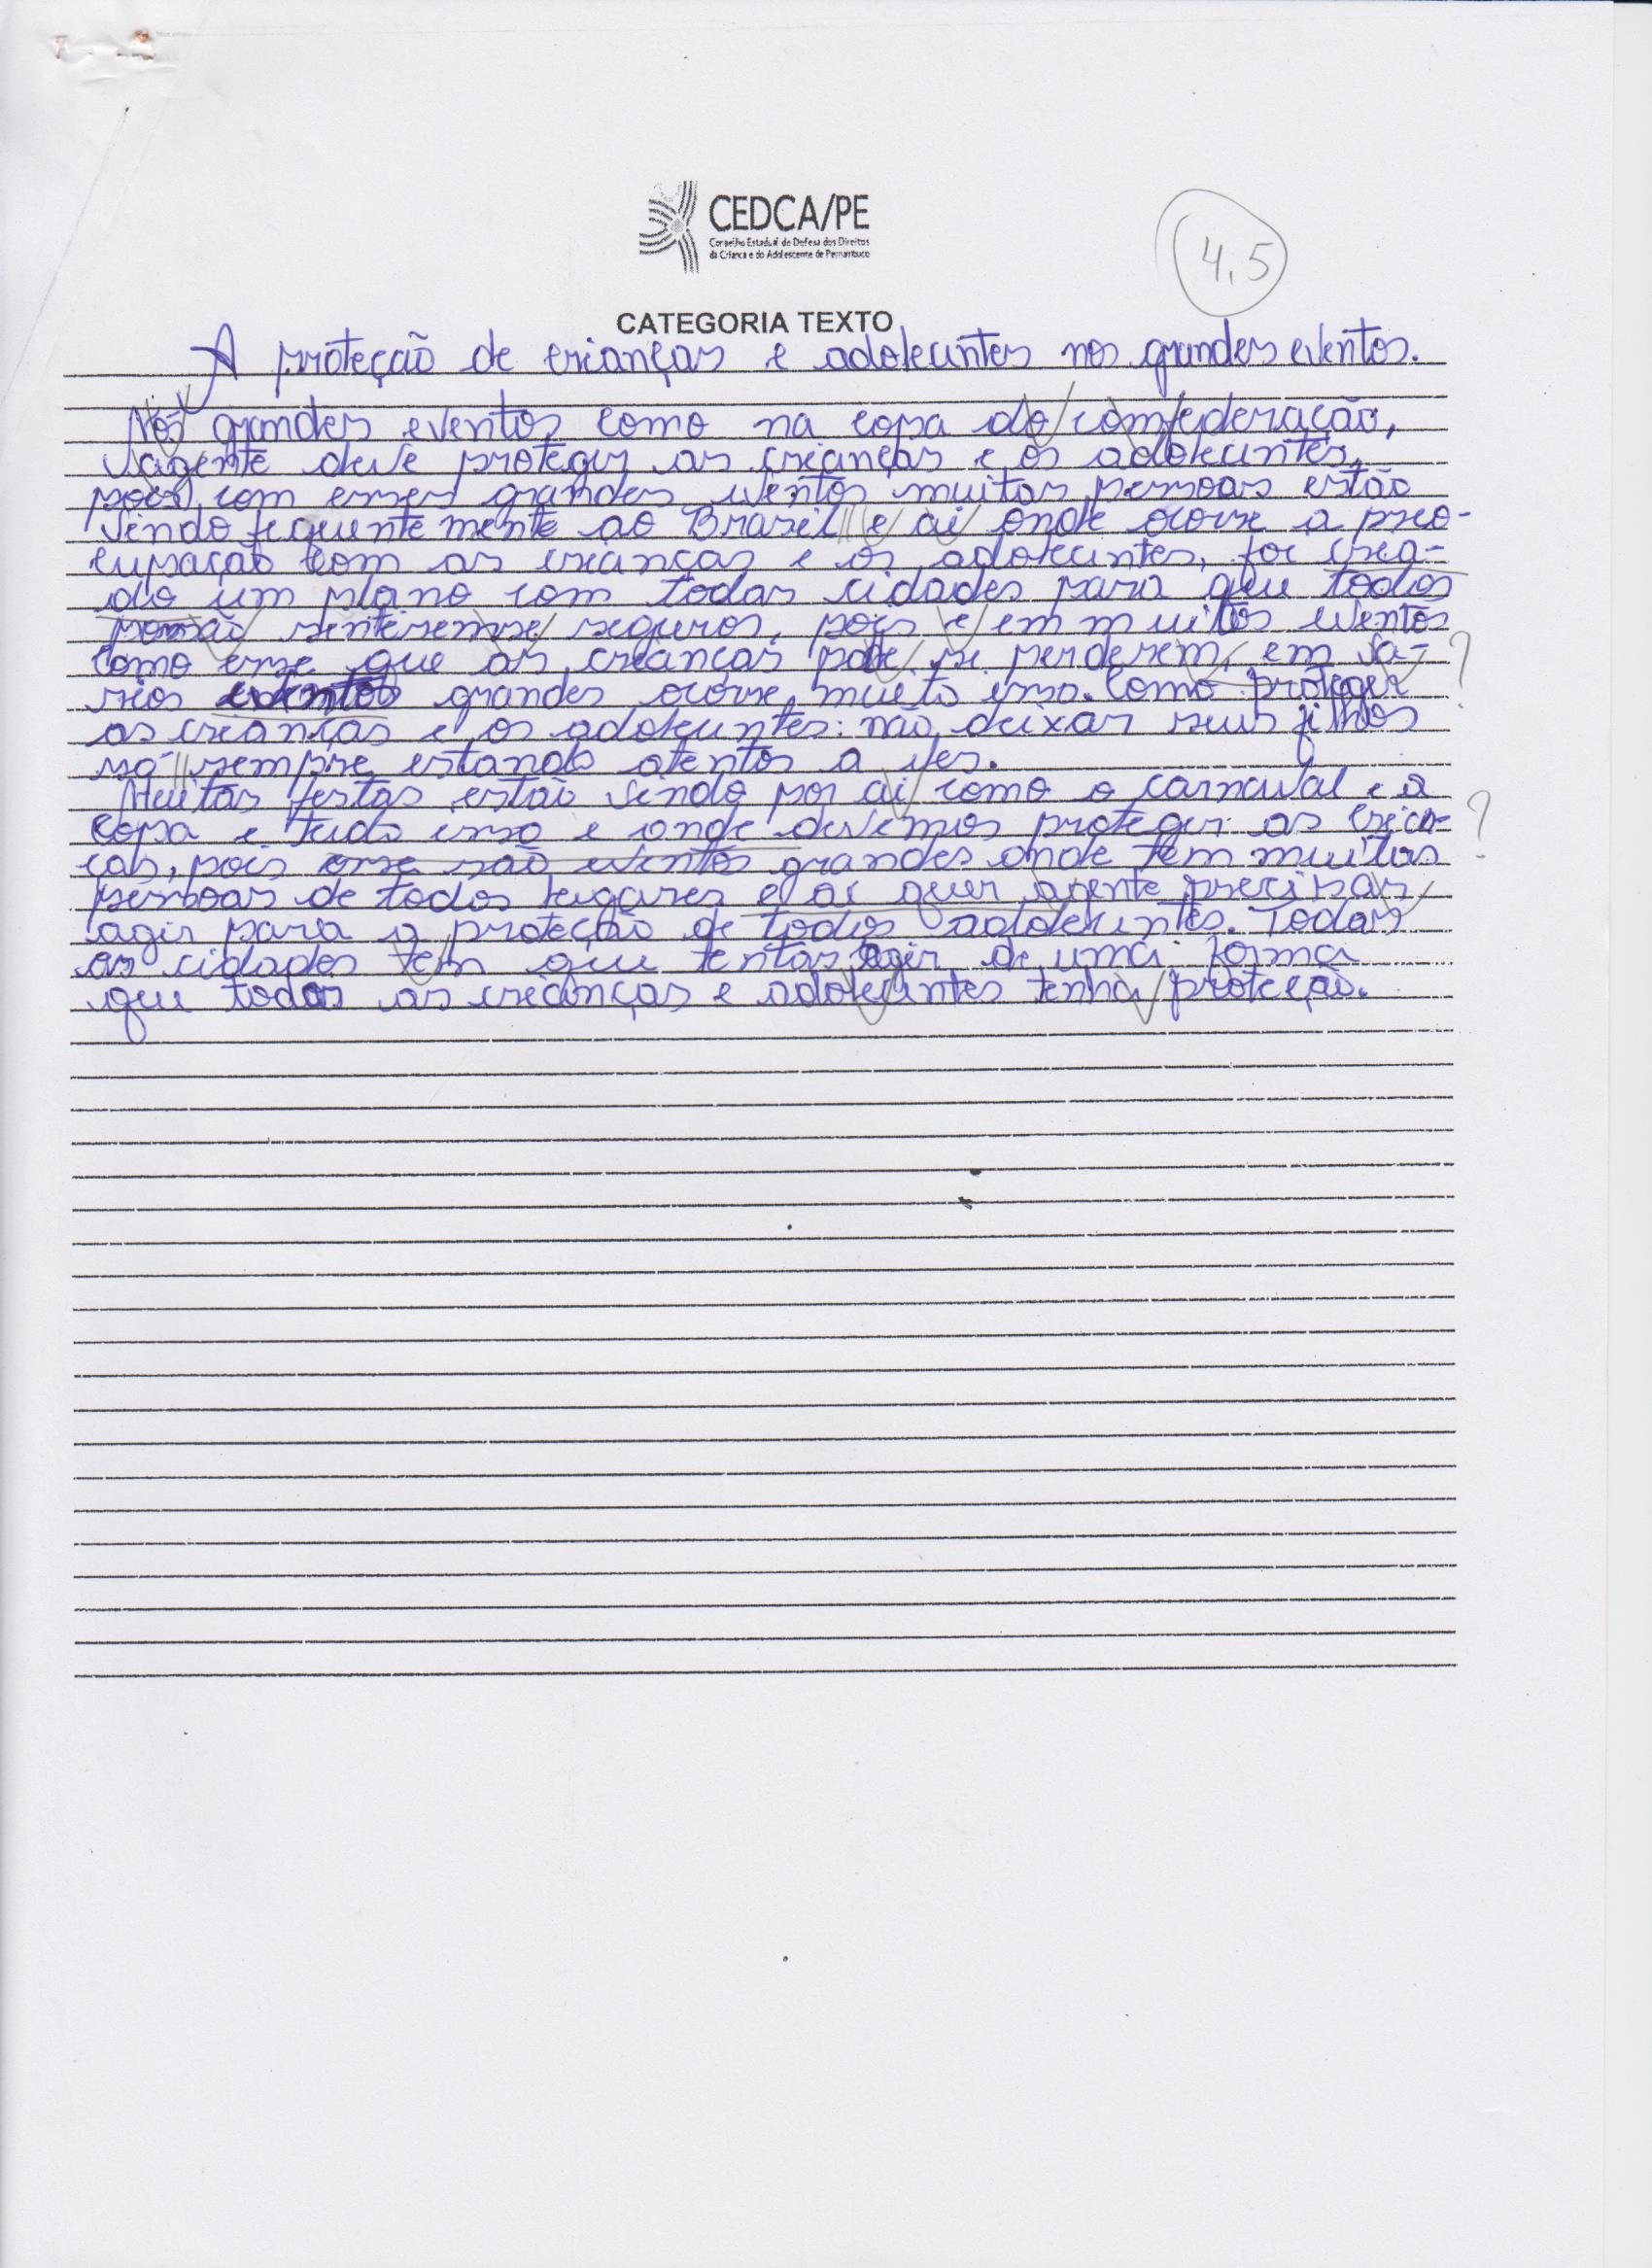 CEDCA/PE
Conselho Estadual de Defesa dos Direitos
da Criança e do Adolescente de Pernambuco
4,5
CATEGORIA TEXTO
A proteção de crianças e adolecentes nos grandes eventos.
Nós grandes eventos como na copa do comfederação,
agente deve proteger as crianças e os adolecentes,
pois com esses grandes eventos muitas pessoas estão
vindo fequentemente ao Brasil e ai onde ocorre a preo-
cupação com as crianças e os adolecentes, foi cria-
do um plano com todas cidades para que todos
sinteremse seguros, pois e em muitos eventos
como esse que as crianças pode si perderem, em va-
rios eventos grandes ocorre muito isso. Como proteger
as crianças e os adolecentes: não deixar seus filhos
só sempre estando atentos a eles.
Muitas festas estão vindo por ai como o carnaval e a
copa e tudo isso e onde devemos proteger as crian-
ças, pois esse são eventos grandes onde tem muitas
pessoas de todos lugares e ai quer agente precisar
agir para a proteção de todos adolecentes. Todas
as cidades tem que tentar agir de uma forma
que todas as crianças e adolecentes tenha proteção.
?
?